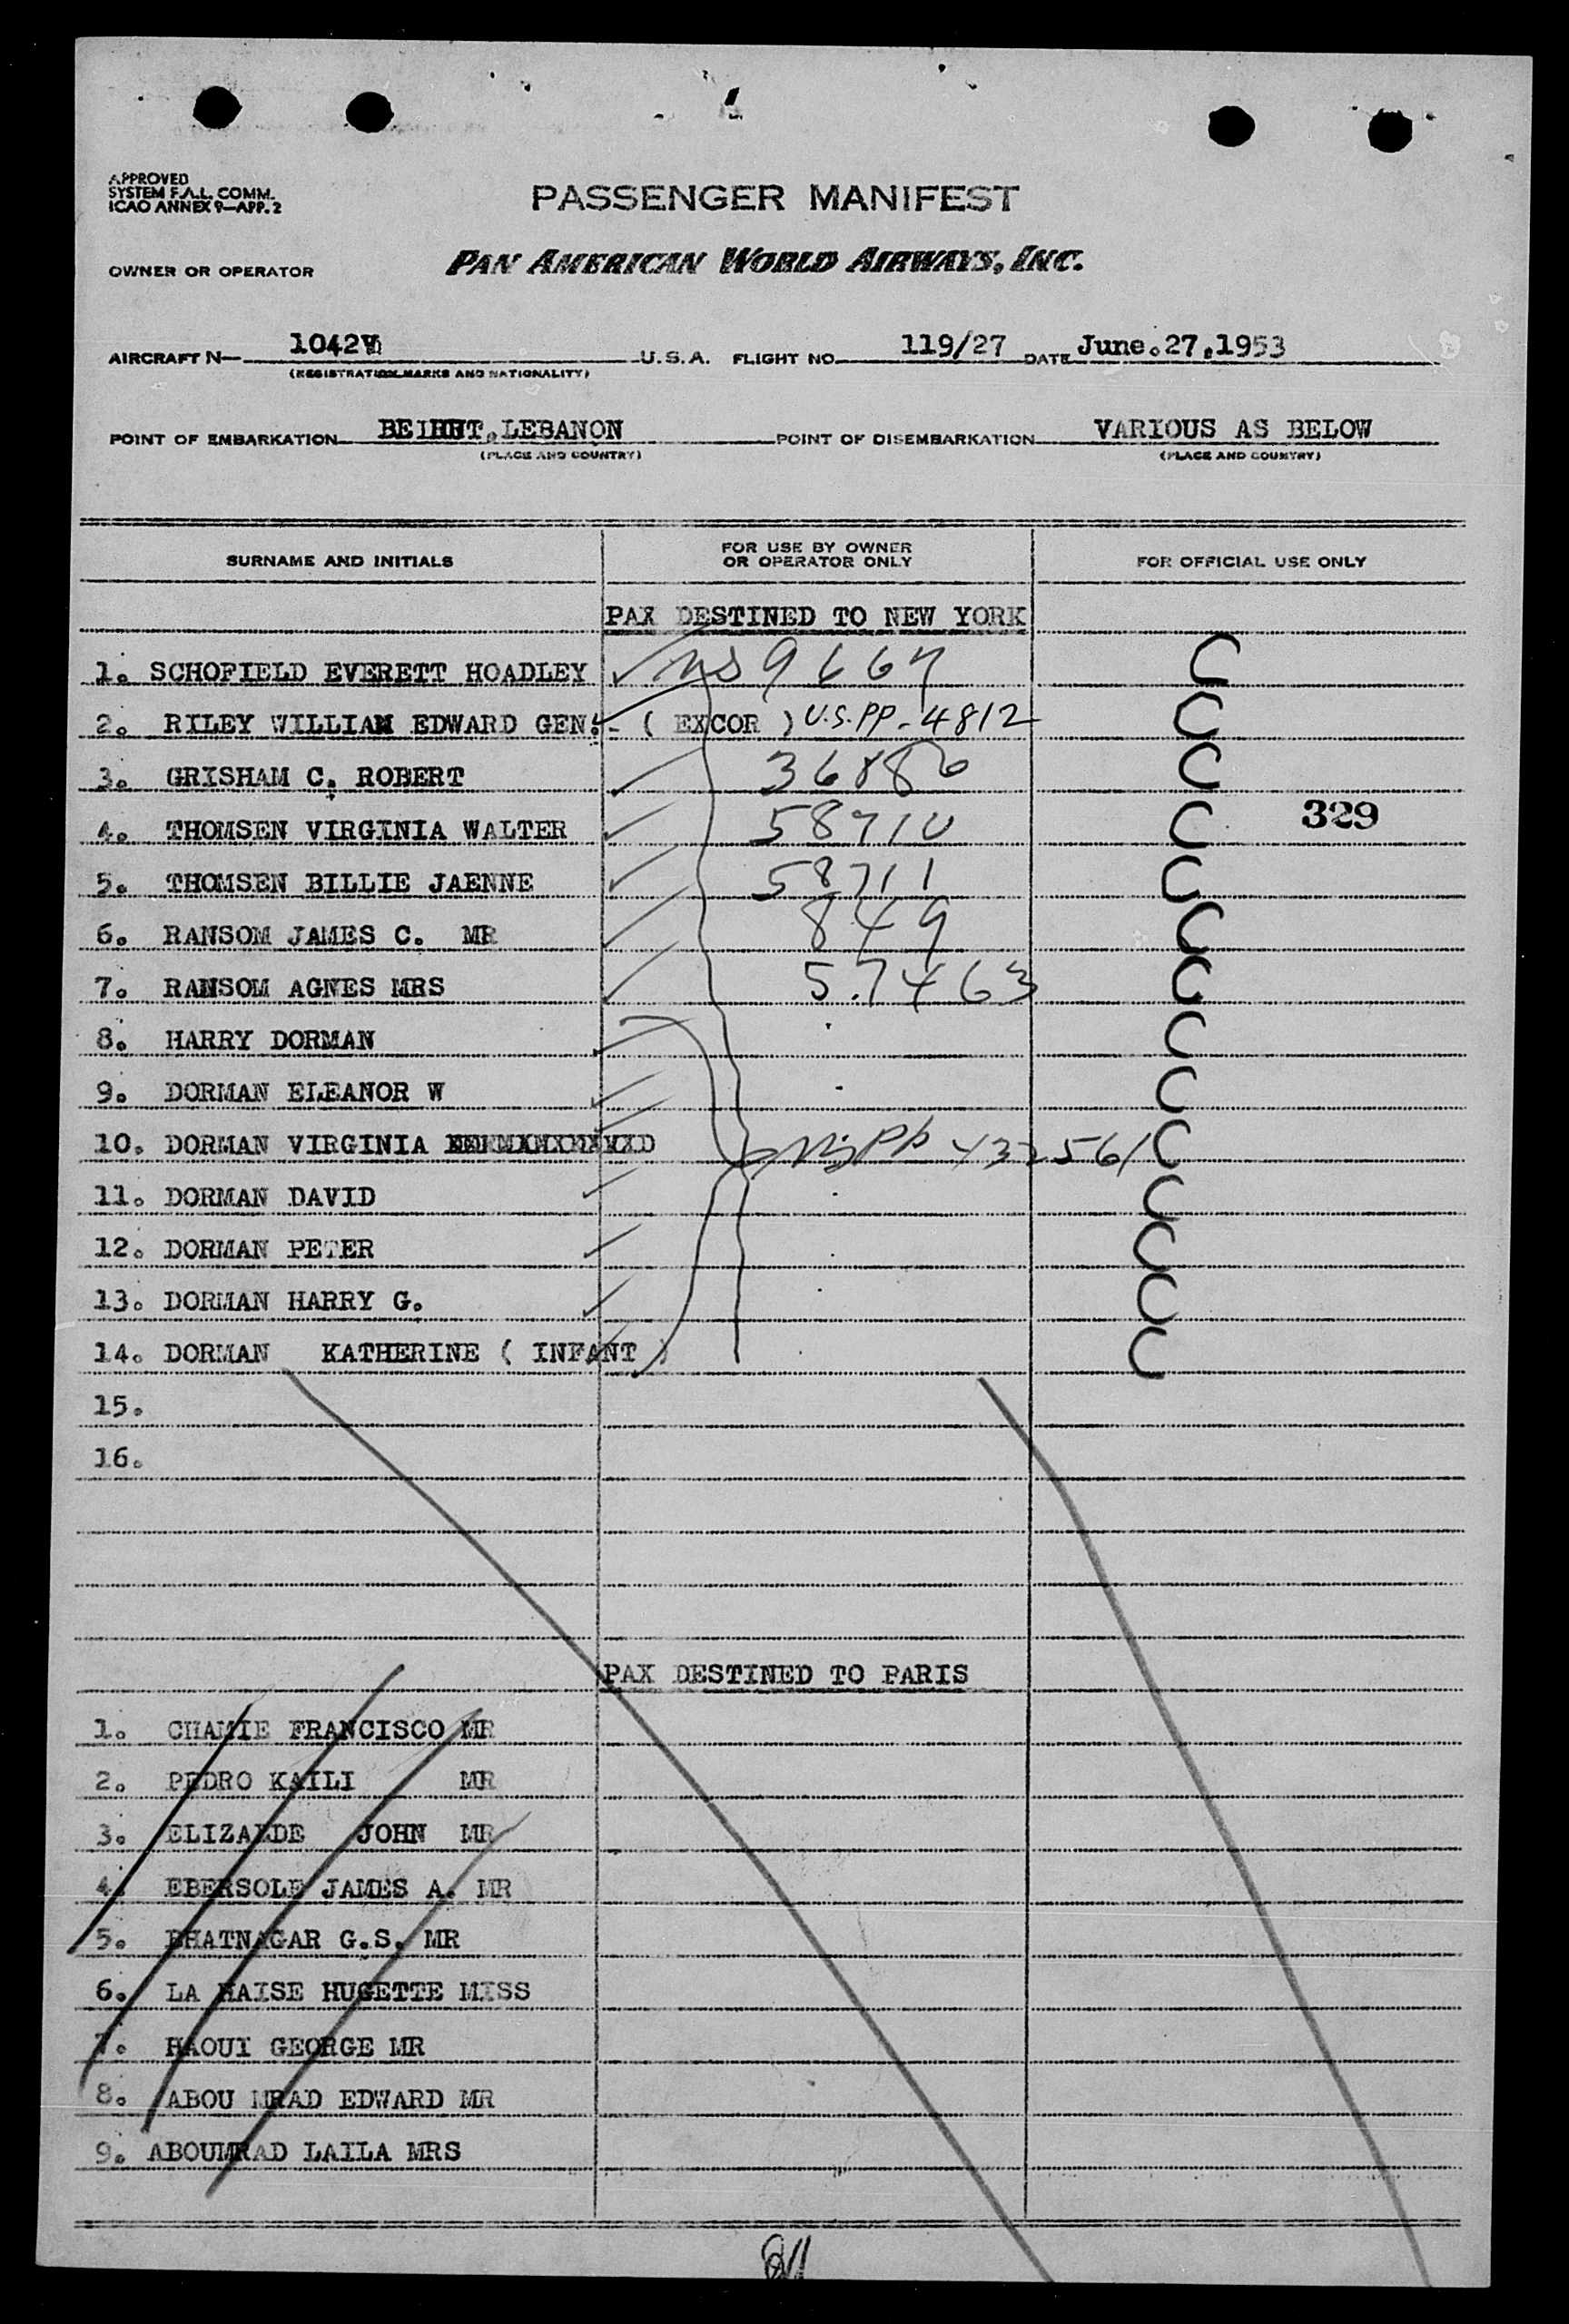 APPROVED
SYSTEM F.A.L. COMM.
ICAO ANNEX 9—APP. 2
PASSENGER MANIFEST
OWNER OR OPERATOR PAN AMERICAN WORLD AIRWAYS, INC.
AIRCRAFT N— 1042V U.S.A. FLIGHT NO. 119/27 DATE June.27.1953
(REGISTRATION MARKS AND NATIONALITY)
POINT OF EMBARKATION LEBANON POINT OF DISEMBARKATION VARIOUS AS BELOW
(PLACE AND COUNTRY) (PLACE AND COUNTRY)
SURNAME AND INITIALS FOR USE BY OWNER OR OPERATOR ONLY FOR OFFICIAL USE ONLY
PAX DESTINED TO NEW YORK
1. SCHOFIELD EVERETT HOADLEY C
2. RILEY WILLIAM EDWARD GEN. - ( EXCOR ) U.S.PP-4812 C
3. GRISHAM C. ROBERT 36886 C
4. THOMSEN VIRGINIA WALTER 58710 C 329
5. THOMSEN BILLIE JAENNE 58711 C
6. RANSOM JAMES C. MR 849 C
7. RANSOM AGNES MRS 57463 C
8. HARRY DORMAN C
9. DORMAN ELEANOR W C
10. DORMAN VIRGINIA C
11. DORMAN DAVID C
12. DORMAN PETER C
13. DORMAN HARRY G. C
14. DORMAN KATHERINE ( INFANT ) C
15.
16.
PAX DESTINED TO PARIS
1. CHAMIE FRANCISCO MR
2. PEDRO KAILI MR
3. ELIZALDE JOHN MR
4. EBERSOLE JAMES A. MR
5. BHATNAGAR G.S. MR
6. LA HAISE HUGETTE MISS
7. HAOUI GEORGE MR
8. ABOU MRAD EDWARD MR
9. ABOUMRAD LAILA MRS